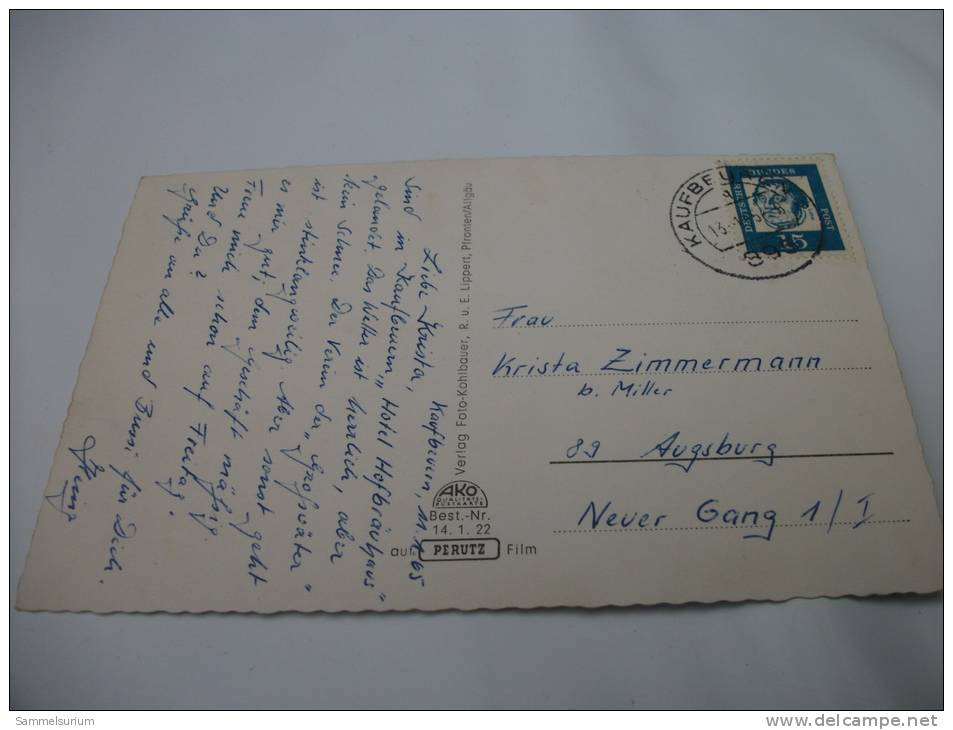 Kaufbeuren, 11.1.65
Liebe Krista,
Sind in Kaufbeuren „Hotel Hofbräuhaus"
gelandet. Das Wetter ist herrlich, aber
kein Schnee. Der Verein der „Großväter"
ist stinklangweilig. Aber sonst geht
es mir gut, dem Geschäft mäßig.
Freue mich schon auf Freitag.
Und Du?
Grüße an alle und Bussi für Dich.
Heinz
Verlag Foto-Kohlbauer, R. u. E. Lippert, Pfronten/Allgäu
AKO
QUALITÄTS-
POSTKARTE
Best.-Nr.
14. 1. 22
auf PERUTZ Film
KAUFBEU
13.
DEUTSCHE BUNDES POST
15
Frau
Krista Zimmermann
b. Miller
89 Augsburg
Neuer Gang 1/I
Sammelsurium
delcampe.net